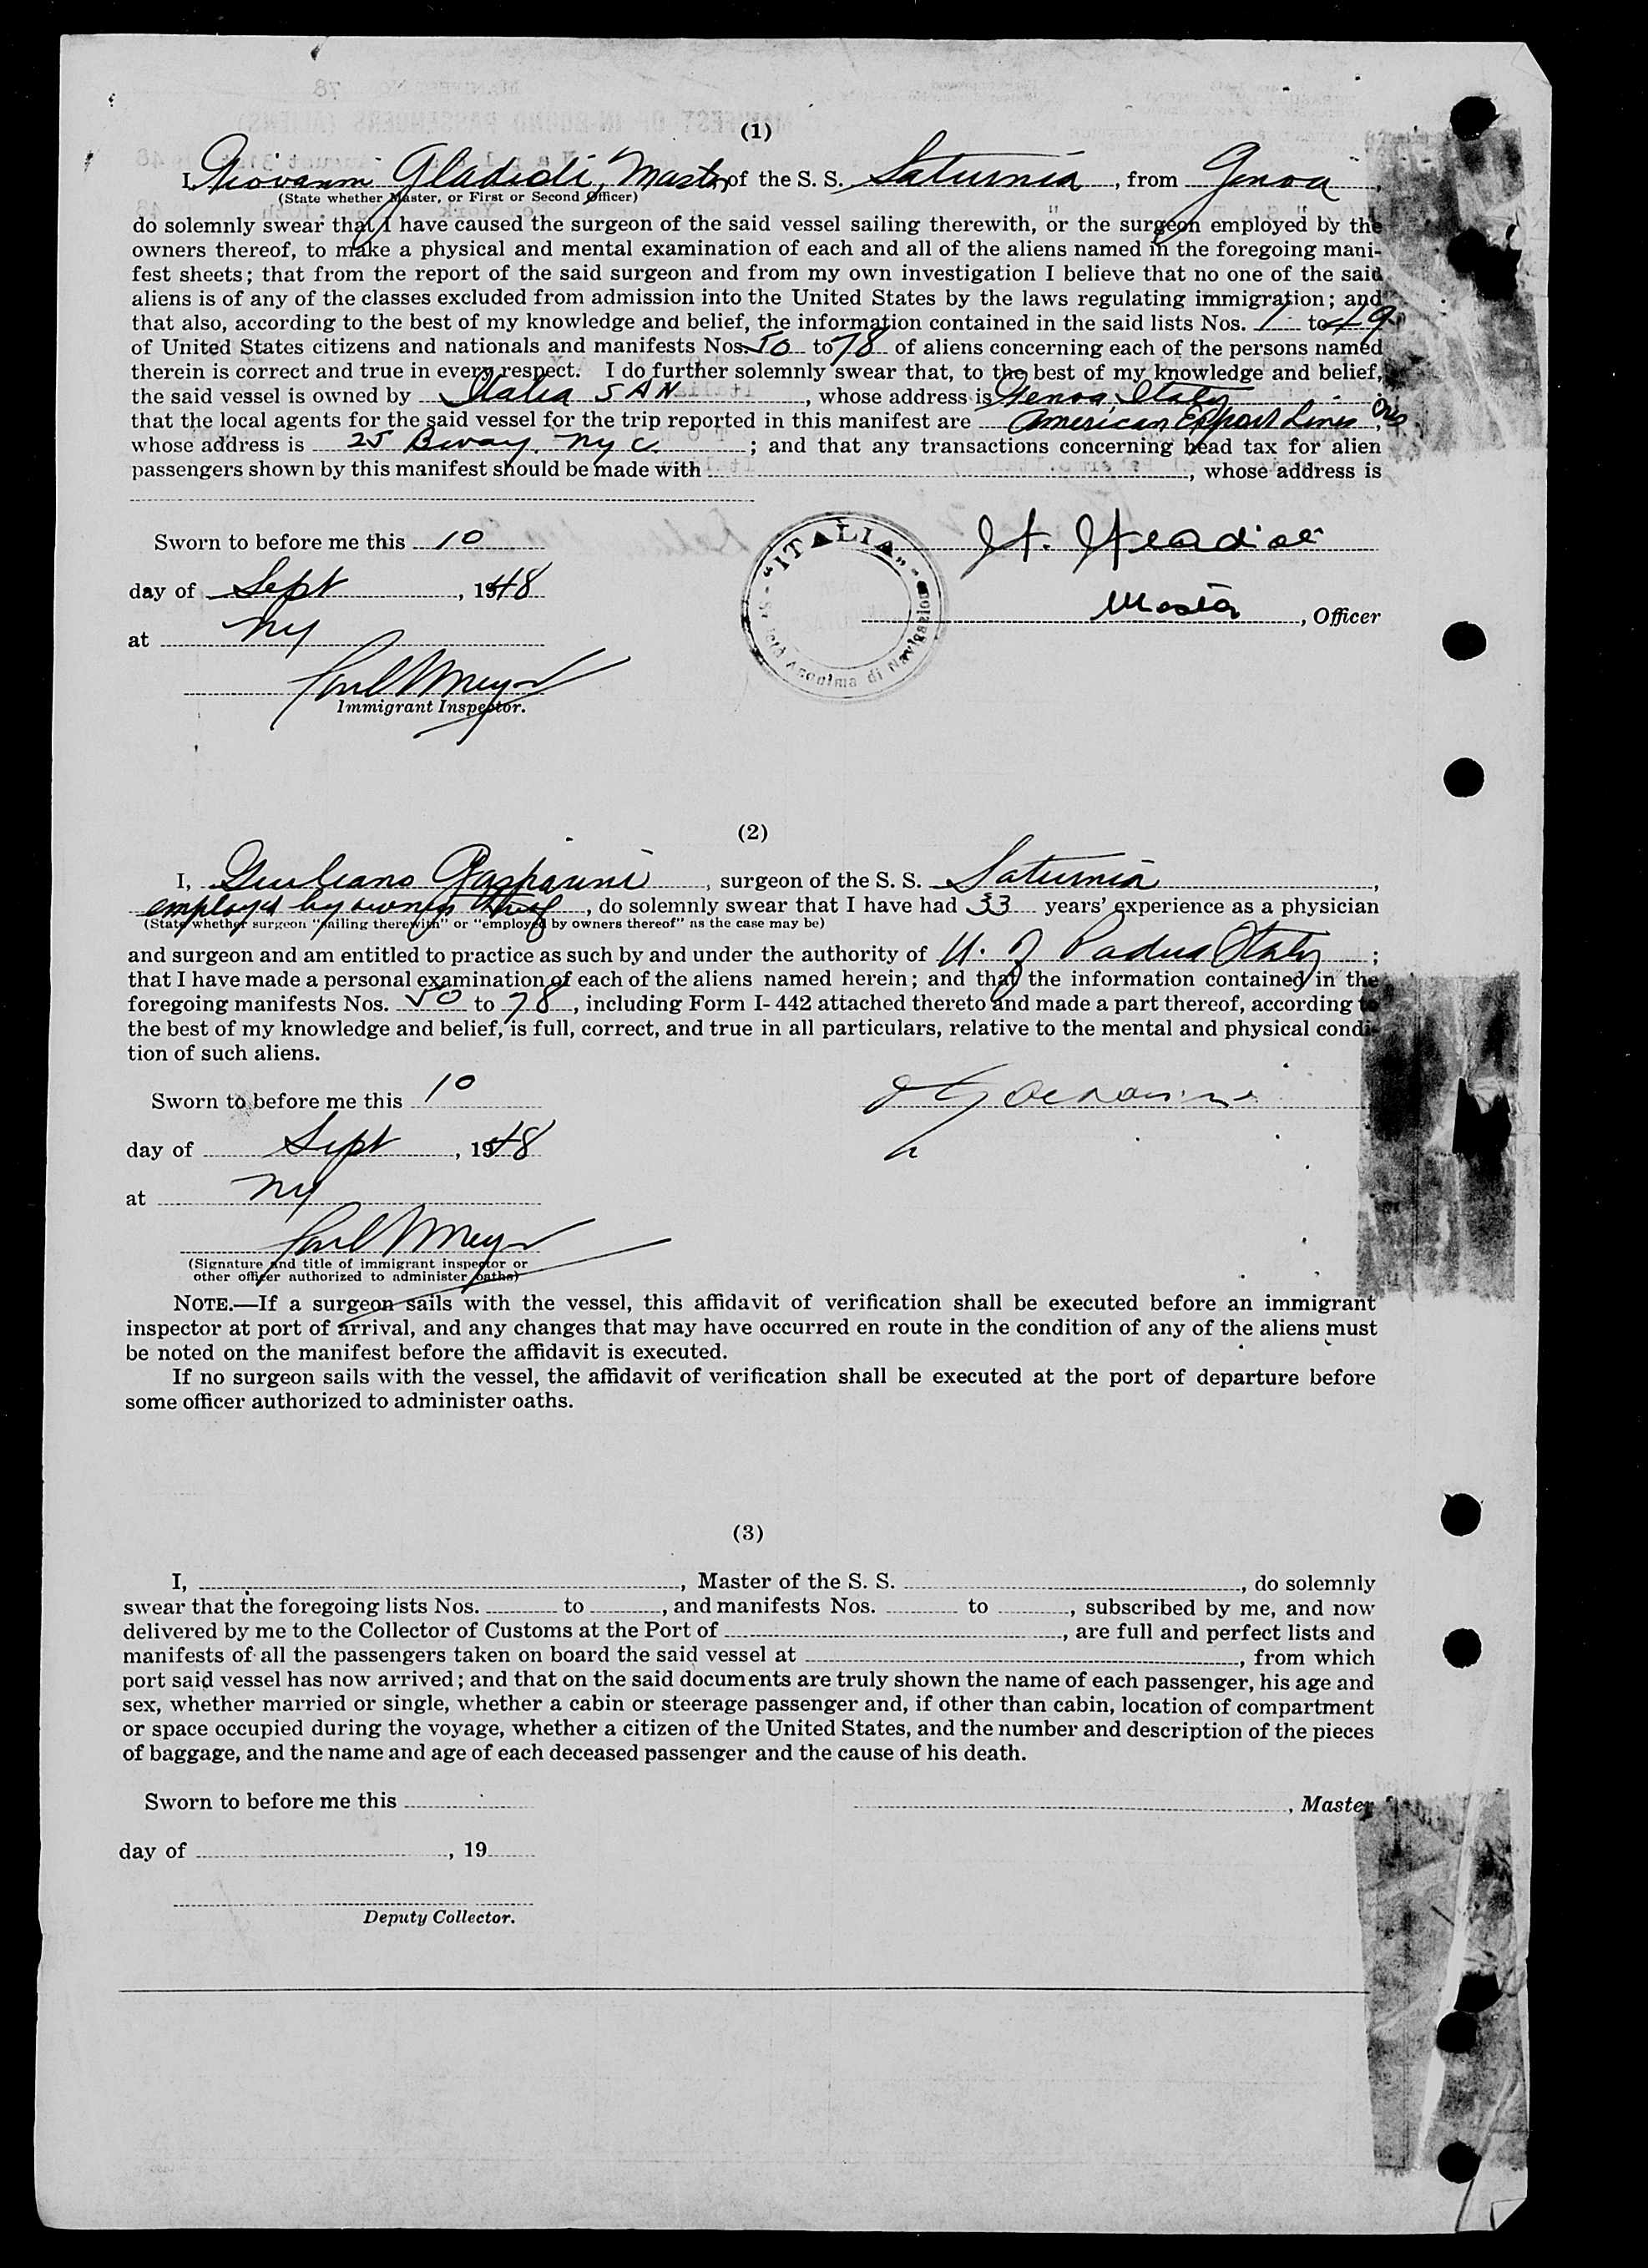 (1)
I, Giovanni Gladioli, Master of the S. S. Saturnia, from Genoa,
(State whether Master, or First or Second Officer)
do solemnly swear that I have caused the surgeon of the said vessel sailing therewith, or the surgeon employed by the
owners thereof, to make a physical and mental examination of each and all of the aliens named in the foregoing mani-
fest sheets; that from the report of the said surgeon and from my own investigation I believe that no one of the said
aliens is of any of the classes excluded from admission into the United States by the laws regulating immigration; and
that also, according to the best of my knowledge and belief, the information contained in the said lists Nos. 1 to 49
of United States citizens and nationals and manifests Nos. 50 to 78 of aliens concerning each of the persons named
therein is correct and true in every respect. I do further solemnly swear that, to the best of my knowledge and belief,
the said vessel is owned by Italia SAN, whose address is Genoa, Italy;
that the local agents for the said vessel for the trip reported in this manifest are American Export Lines,
whose address is 25 Bway. NYC.; and that any transactions concerning head tax for alien
passengers shown by this manifest should be made with , whose address is
Sworn to before me this 10
day of Sept, 1948
at NY
Paul Meyer
Immigrant Inspector.
"ITALIA"
Società Anonima di Navigazione
Master, Officer
(2)
I, Giuliano Gasparini, surgeon of the S. S. Saturnia,
employed by owners thereof, do solemnly swear that I have had 33 years' experience as a physician
(State whether surgeon "sailing therewith" or "employed by owners thereof" as the case may be)
and surgeon and am entitled to practice as such by and under the authority of U. of Padua Italy;
that I have made a personal examination of each of the aliens named herein; and that the information contained in the
foregoing manifests Nos. 50 to 78, including Form I-442 attached thereto and made a part thereof, according to
the best of my knowledge and belief, is full, correct, and true in all particulars, relative to the mental and physical condi-
tion of such aliens.
Sworn to before me this 10
day of Sept, 1948
at NY
Paul Meyer
(Signature and title of immigrant inspector or
other officer authorized to administer oaths)
NOTE.—If a surgeon sails with the vessel, this affidavit of verification shall be executed before an immigrant
inspector at port of arrival, and any changes that may have occurred en route in the condition of any of the aliens must
be noted on the manifest before the affidavit is executed.
If no surgeon sails with the vessel, the affidavit of verification shall be executed at the port of departure before
some officer authorized to administer oaths.
(3)
I, , Master of the S. S. , do solemnly
swear that the foregoing lists Nos. to , and manifests Nos. to , subscribed by me, and now
delivered by me to the Collector of Customs at the Port of , are full and perfect lists and
manifests of all the passengers taken on board the said vessel at , from which
port said vessel has now arrived; and that on the said documents are truly shown the name of each passenger, his age and
sex, whether married or single, whether a cabin or steerage passenger and, if other than cabin, location of compartment
or space occupied during the voyage, whether a citizen of the United States, and the number and description of the pieces
of baggage, and the name and age of each deceased passenger and the cause of his death.
Sworn to before me this
, Master
day of , 19
Deputy Collector.